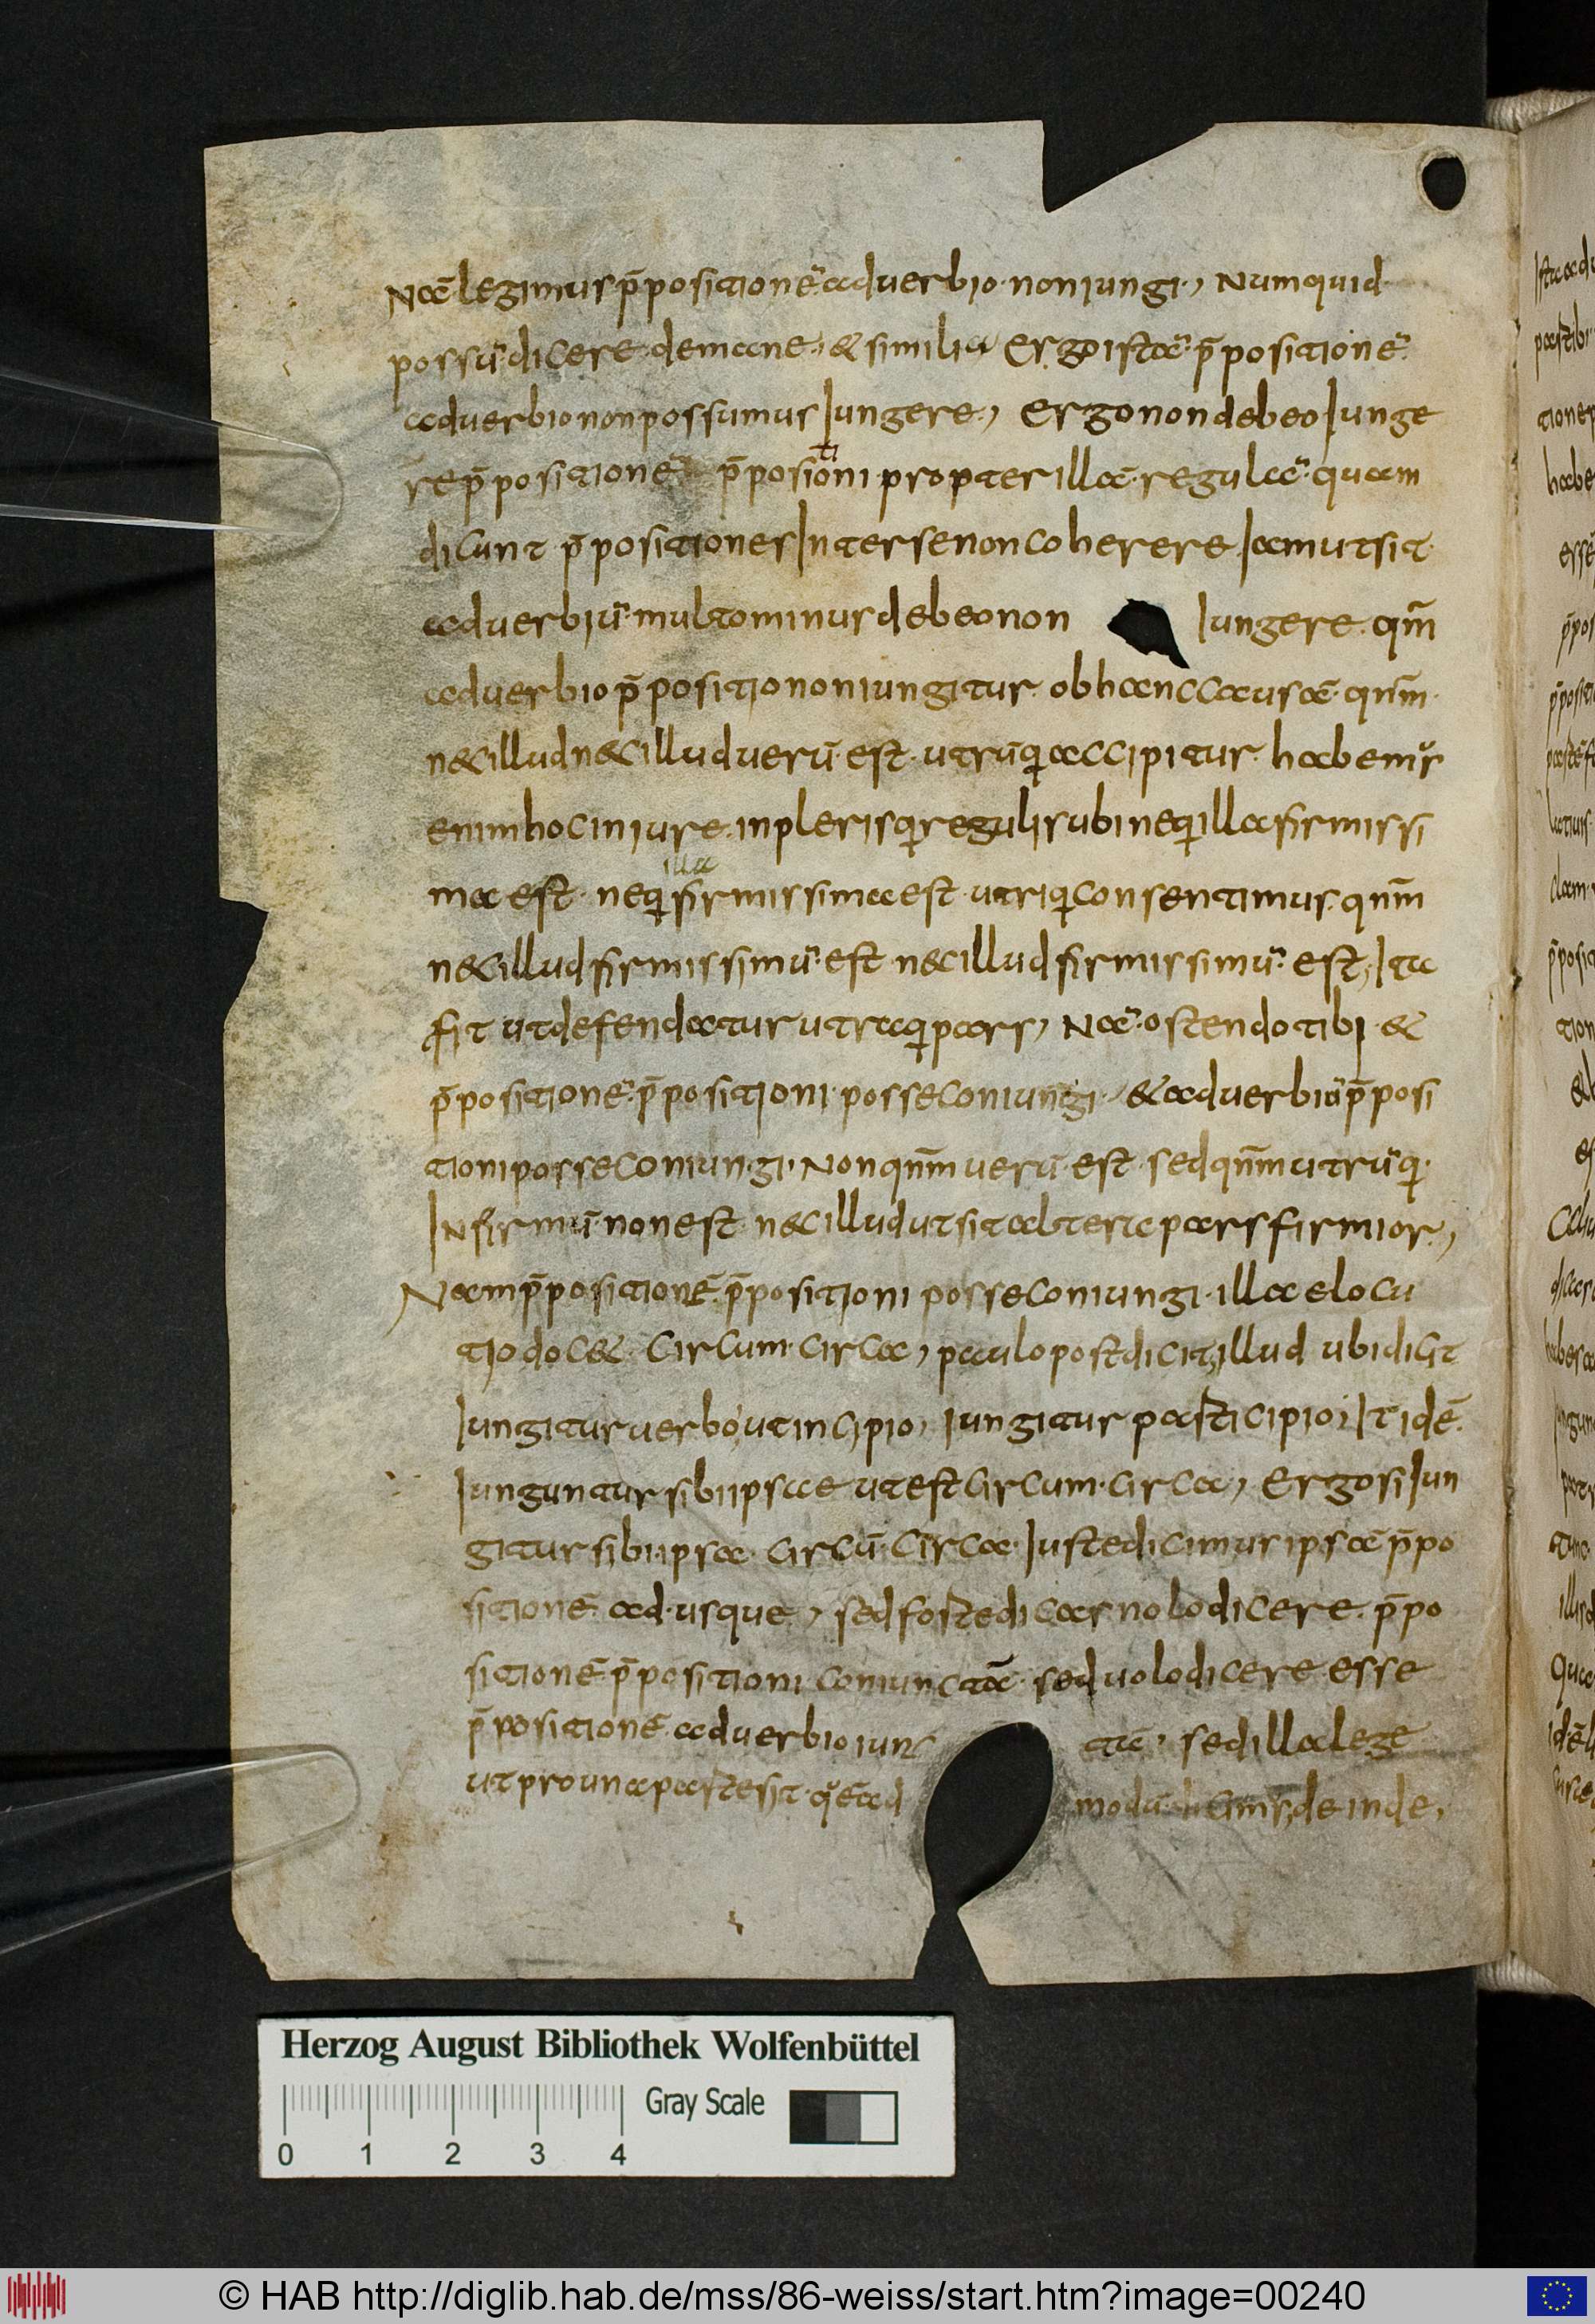 Nā legimus p̄positionē adverbio non iungi, Numquid
possū dicere demane, & similia Ergo istā p̄positionē
adverbio non possumus Iungere, Ergo non debeo Iunge
re p̄positionē p̄positioni propter illā regulā quam
dicunt p̄positiones Inter se non coherere Iam ut sit
adverbiū multo minus debeo non Iungere qm̄
adverbio p̄positio non iungitur ob hanc causā qnm̄
n&c illud n&c illud verū est utrūq; accipitur habemus
enim hoc in iure in plerisq; regulis ubi neq; illa firmissi
ma est neq; illa firmissima est utriq; consentimus qnm̄
n&c illud firmissimū est n&c illud firmissimū est, Ita
fit ut defendatur utraq; pars, Nā ostendo tibi &
p̄positionē p̄positioni posse coniungi & adverbiū p̄posi
tioni posse coniungi Non qnm̄ verū est sed qnm̄ utrūq;
Infirmū non est n&c illud ut sit altera pars firmior,
Nam p̄positionē p̄positioni posse coniungi illa elocu
tio doc& circum circa, paulo post dicit, illud ubi dicit
Iungitur verbo ut incipio, iungitur participio, Itidē
Iunguntur sibi ipsae ut est circum circa, Ergo si Iun
gitur sibi ipsa circū circa Iuste dicimus ipsā p̄po
sitionē ad usque, sed foste dicas nolo dicere p̄po
sitionē p̄positioni coniunctā sed volo dicere esse
p̄positionē adverbio iunc tā, sed illa lege
ut pro una parte sit quēad modū dicimus, deinde,
Herzog August Bibliothek Wolfenbüttel
Gray Scale
0 1 2 3 4
© HAB http://diglib.hab.de/mss/86-weiss/start.htm?image=00240